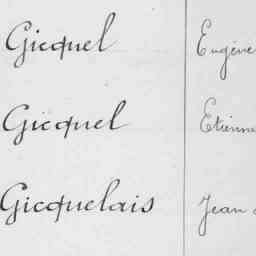 Gicquel Eugène
Gicquel Etienne
Gicquelais Jean